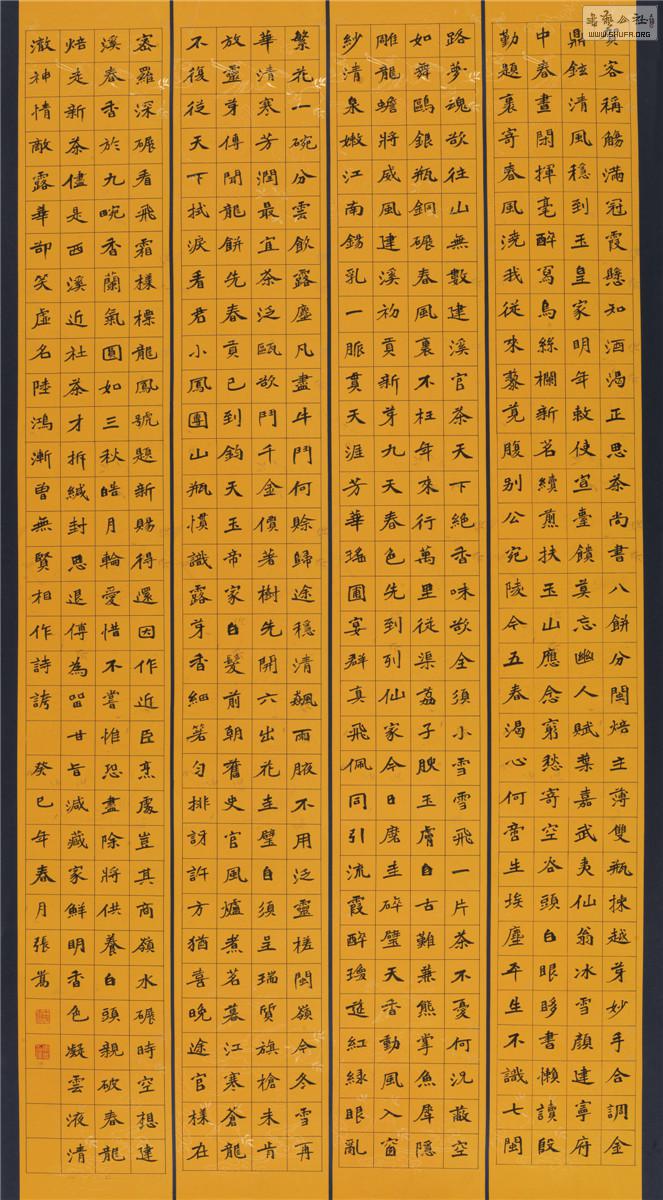 客稱觴滿冠霞懸知酒渴正思茶尚書八餅分閩焙主薄雙瓶揀越芽妙手合調金
鼎鉉清風穩到玉皇家明年敕使宣臺餽莫忘幽人賦葉嘉武夷仙翁冰雪顏建寧府
中春晝閑揮毫醉寫烏絲欄新茗續煎扶玉山應念窮愁寄空谷頭白眼眵書懶讀殷
勤題裹寄春風澆我從來藜莧腹別公宛陵今五春渴心何啻生埃塵平生不識七閩
路夢魂欲往山無數建溪官茶天下絕香味欲全須小雪雪飛一片茶不憂何況蔽空
如舞鷗銀瓶銅碾春風裏不枉年來行萬里從渠荔子腴玉膚自古難兼熊掌魚犀隱
雕龍蟾將威風建溪初貢新芽九天春色先到列仙家今日磨圭碎璧天香動風入窗
紗清泉嫩江南錫乳一脈貫天涯芳華瑤圃宴群真飛佩同引流霞醉瓊筵紅綠眼亂
繁花一碗分雲飲露塵凡盡牛鬥何賒歸途穩清飆兩腋不用泛靈槎閩嶺今冬雪再
華清寒芳潤最宜茶泛甌欲鬥千金價著樹先開六出花圭璧自須呈瑞質旗槍未肯
放靈芽傳聞龍餅先春貢已到鈞天玉帝家白髮前朝舊史官風爐煮茗暮江寒蒼龍
不復從天下拭淚看君小鳳團山瓶慣識露芽香細箬勻排訝許方猶喜晚途官樣在
密羅深碾看飛霜樣標龍鳳號題新賜得還因作近臣烹處豈其商嶺水碾時空想建
溪春香於九畹香蘭氣圓如三秋皓月輪愛惜不嘗惟恐盡除將供養白頭親破春龍
焙走新茶儘是西溪近社茶才拆緘封思退傅為留甘旨減藏家鮮明香色凝雲液清
澈神情敵露華卻笑虛名陸鴻漸曾無賢相作詩誇 癸巳年春月張嵩
WWW.SHUFA.ORG